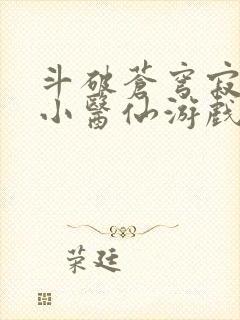 斗破蒼穹寂
小醫仙游戲
荣廷